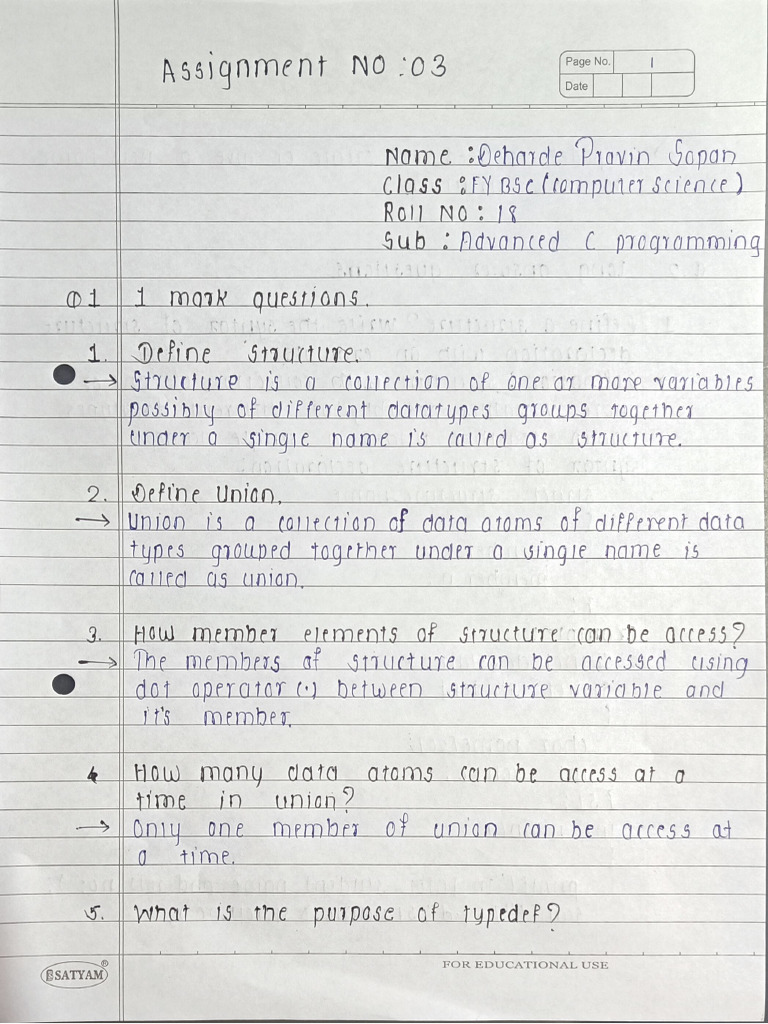 Assignment NO : 03
Page No. 1
Date
Name : Deharde Pravin Sopan
Class : FY BSc (computer science)
Roll NO : 18
Sub : Advanced C programming
Q 1 1 mark questions.
1. Define structure.
→ Structure is a collection of one or more variables
possibly of different datatypes groups together
under a single name is called as structure.
2. Define Union.
→ Union is a collection of data atoms of different data
types grouped together under a single name is
called as union.
3. How member elements of structure can be access?
→ The members of structure can be accessed using
dot operator (.) between structure variable and
it's member.
4 How many data atoms can be access at a
time in union?
→ Only one member of union can be access at
a time.
5. What is the purpose of typedef?
SATYAM®
FOR EDUCATIONAL USE